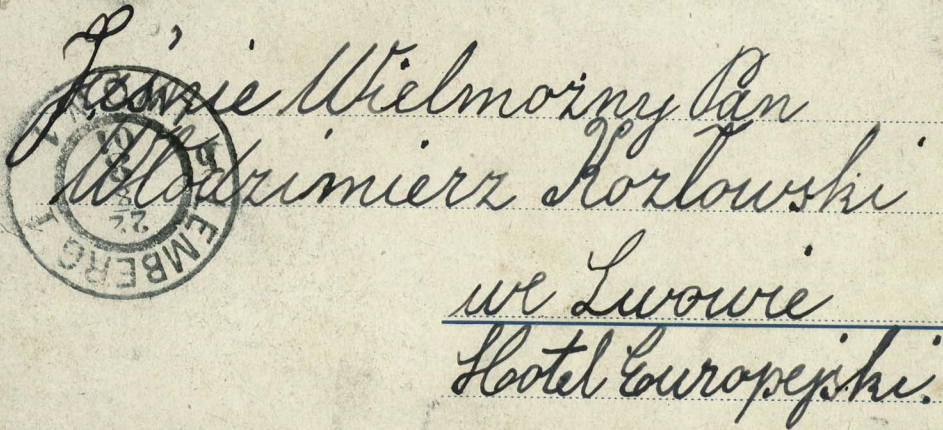 Jaśnie Wielmożny Pan
Włodzimierz Kozłowski
we Lwowie
Hotel Europejski.
LEMBERG 1